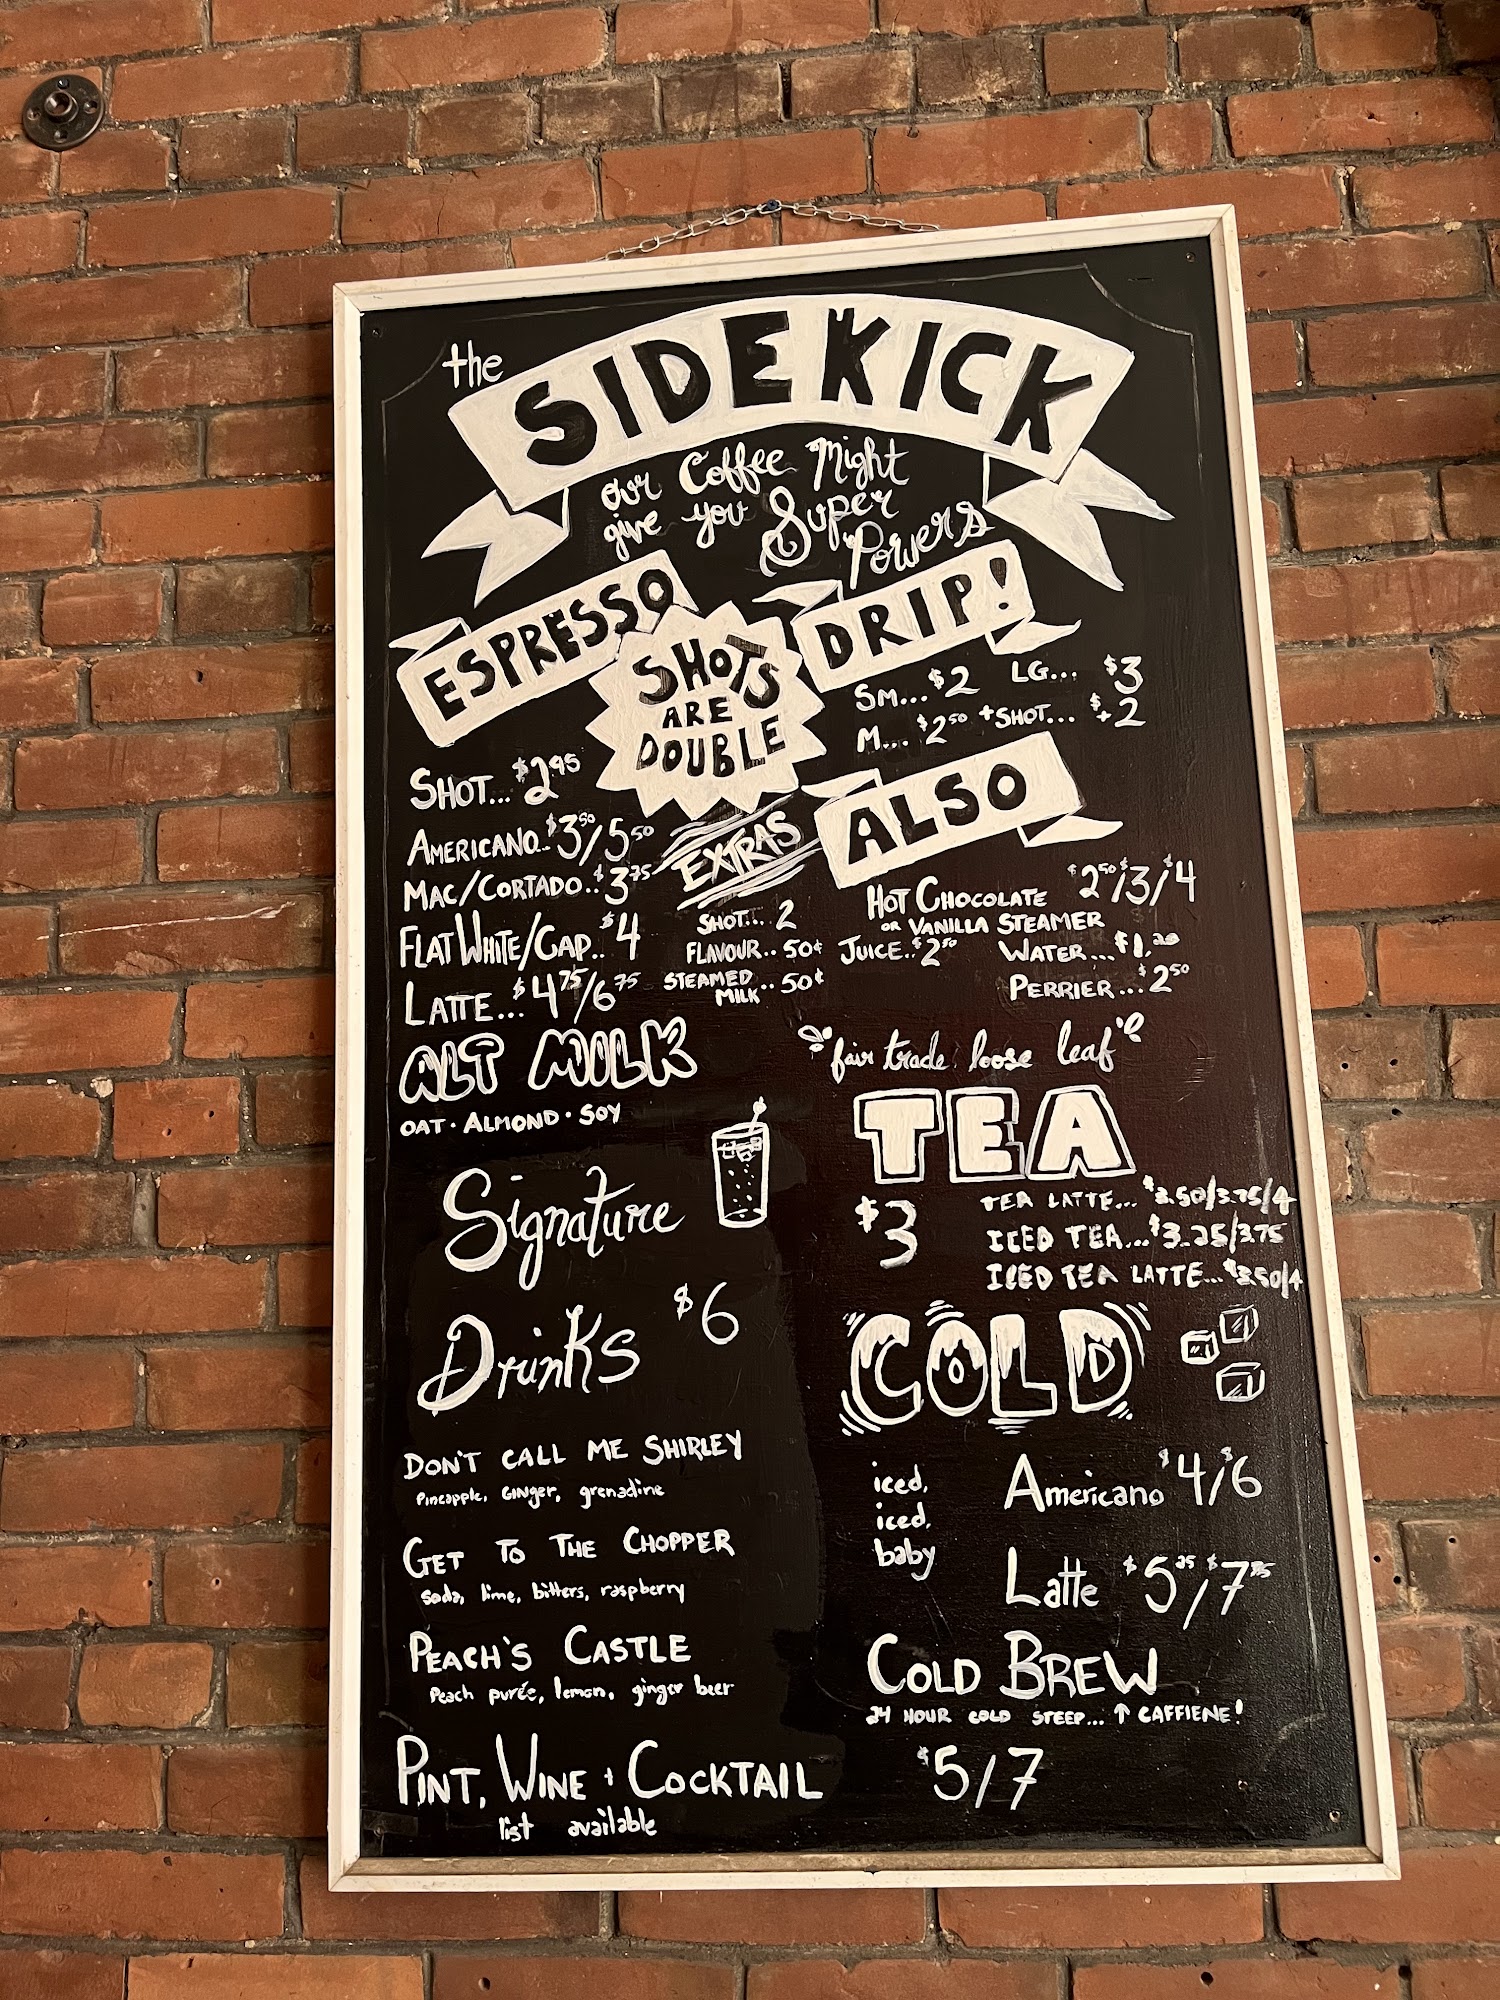 the SIDEKICK
our Coffee Might
give you Super
Powers
ESPRESSO
SHOTS
ARE
DOUBLE
SHOT... $2.95
AMERICANO.. $3.50/5.50
MAC/CORTADO.. $3.75
FLAT WHITE/CAP.. $4
LATTE... $4.75/6.75
EXTRAS
SHOT... 2
FLAVOUR.. 50¢
STEAMED
MILK.. 50¢
DRIP!
SM... $2 LG... $3
M... $2.50 +SHOT... $+2
ALSO
HOT CHOCOLATE $2.50/$3/$4
OR VANILLA STEAMER
JUICE.. $2.50 WATER... $1.
PERRIER... $2.50
ALT MILK
OAT · ALMOND · SOY
"fair trade loose leaf"
TEA
$3
TEA LATTE... $3.50/3.75/4
ICED TEA... $3.25/3.75
ICED TEA LATTE... $3.50/4
Signature
Drinks $6
DON'T CALL ME SHIRLEY
Pineapple, GINger, grenadine
GET TO THE CHOPPER
soda, lime, bitters, raspberry
PEACH'S CASTLE
Peach purée, lemon, ginger beer
PINT, WINE + COCKTAIL
list available
COLD
iced,
iced,
baby
Americano $4/$6
Latte $5.25/$7.25
COLD BREW
24 HOUR COLD STEEP... ↑ CAFFIENE!
$5/7